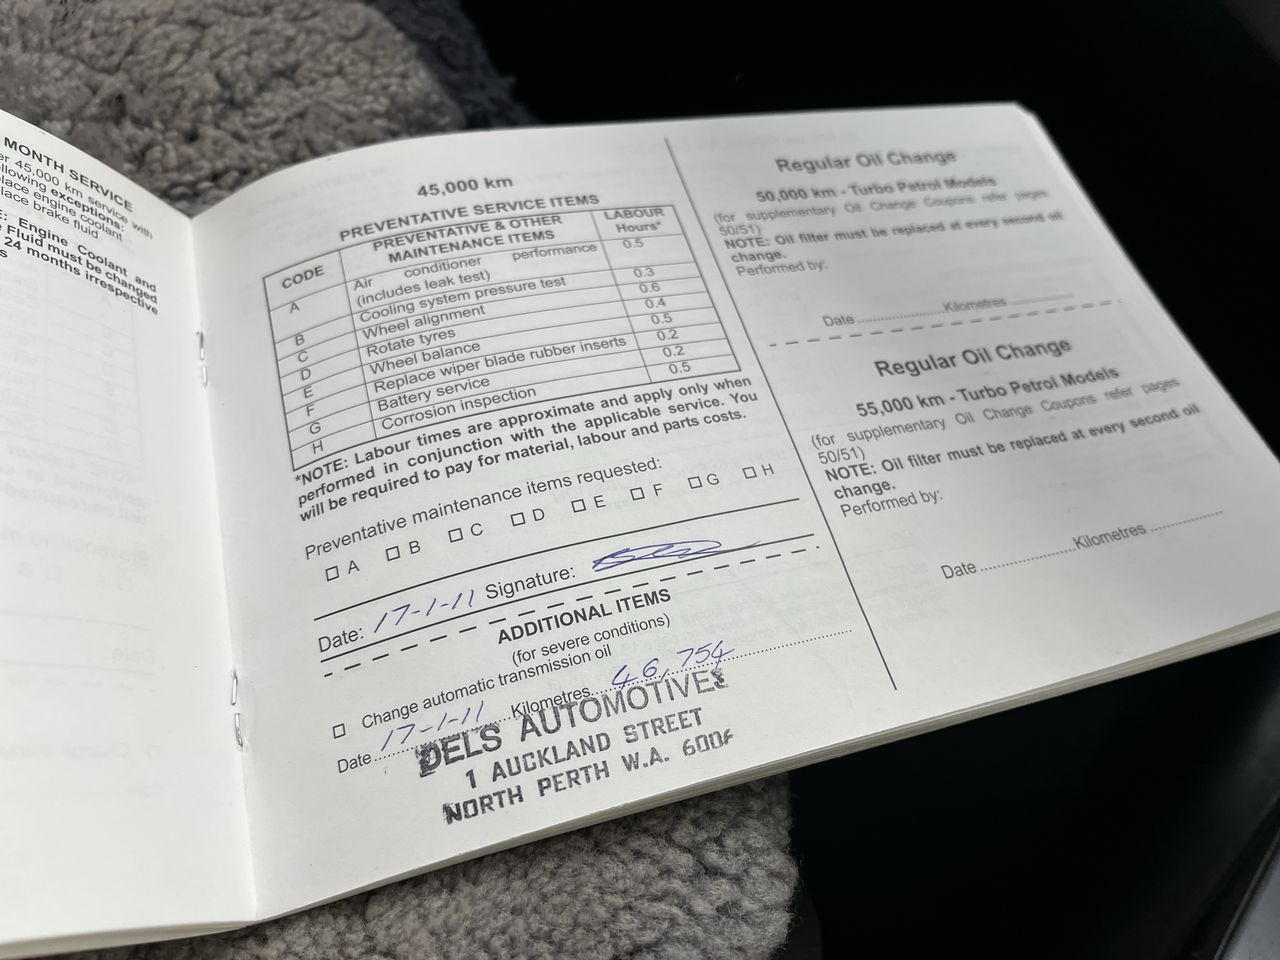 MONTH SERVICE
45,000 km service with
following exceptions:
place engine coolant
place brake fluid
Engine Coolant and
Fluid must be changed
24 months irrespective
45,000 km
PREVENTATIVE SERVICE ITEMS
CODE PREVENTATIVE & OTHER MAINTENANCE ITEMS LABOUR Hours*
A Air conditioner performance (includes leak test) 0.5
B Cooling system pressure test 0.3
C Wheel alignment 0.6
D Rotate tyres 0.4
E Wheel balance 0.5
F Replace wiper blade rubber inserts 0.2
G Battery service 0.2
H Corrosion inspection 0.5
*NOTE: Labour times are approximate and apply only when
performed in conjunction with the applicable service. You
will be required to pay for material, labour and parts costs.
Preventative maintenance items requested:
□ A □ B □ C □ D □ E □ F □ G □ H
Date: 17-1-11 Signature:
ADDITIONAL ITEMS
(for severe conditions)
□ Change automatic transmission oil
Date 17-1-11 Kilometres 46,754
DELS AUTOMOTIVES
1 AUCKLAND STREET
NORTH PERTH W.A.
Regular Oil Change
50,000 km - Turbo Petrol Models
(for supplementary Oil Change Coupons refer pages
50/51)
NOTE: Oil filter must be replaced at every second oil
change.
Performed by:
Date ..................Kilometres ..................
Regular Oil Change
55,000 km - Turbo Petrol Models
(for supplementary Oil Change Coupons refer pages
50/51)
NOTE: Oil filter must be replaced at every second oil
change.
Performed by:
Date ..................Kilometres ..................